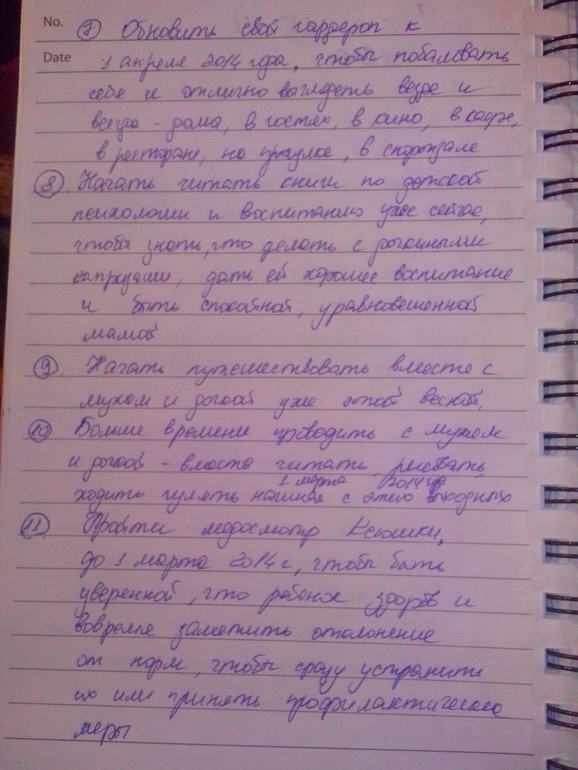 No. 7 Обновить свой гардероп к
Date 1 апреля 2014 года, чтобы побаловать
себе и отлично выглядеть везде и
всегда - дома, в гостях, в кино, в кафе,
в ресторане, на прогулке, в спортзале
8 Начать читать книги по детской
психологии и воспитанию уже сейчас,
чтобы знать, что делать с дочкиными
капризами, дать ей хорошее воспитание
и быть спокойной, уравновешенной
мамой
9 Начать путешествовать вместе с
мужем и дочкой уже этой весной.
10 Больше времени проводить с мужем
и дочкой - вместе читать, рисовать,
1 марта 2014 г.
ходить гулять начиная с этих выходных
11 Пройти медосмотр Ксюшки,
до 1 марта 2014 г, чтобы быть
уверенной, что ребенок здоров и
вовремя заметить отклонение
от норм, чтобы сразу устранить
их или принять профилактические
меры